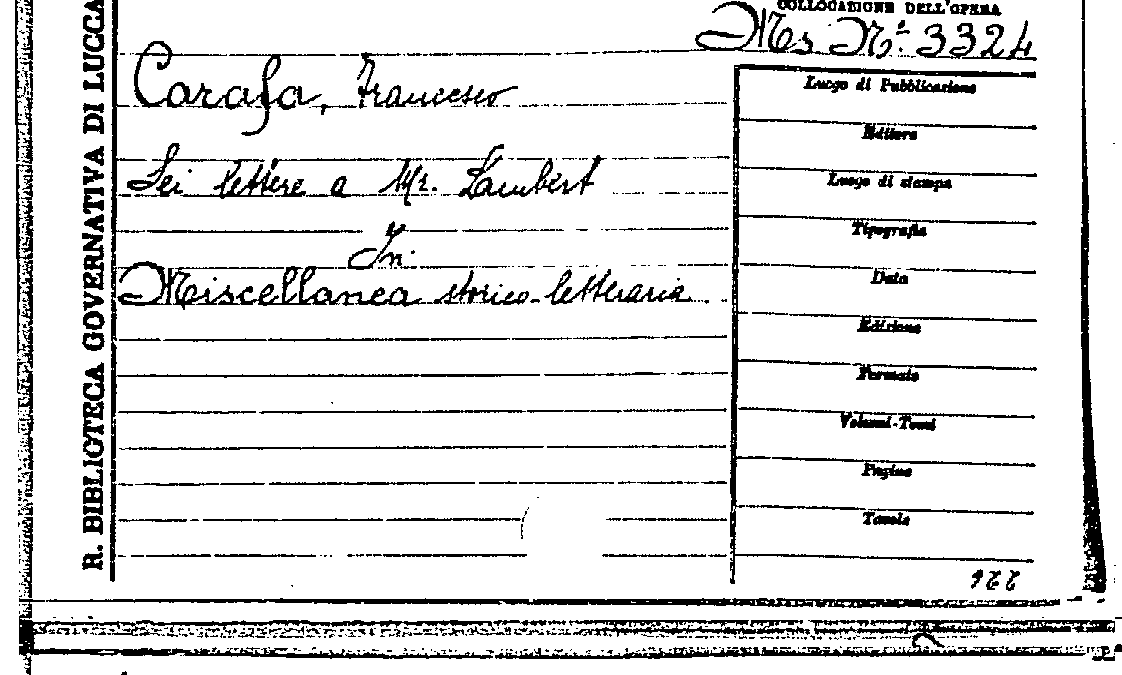 R. BIBLIOTECA GOVERNATIVA DI LUCCA
COLLOCAZIONE DELL'OPERA
Ms Nº 3324
Carafa, Francesco
Sei lettere a Mr. Lambert
In:
Miscellanea storico-letteraria
Luogo di Pubblicazione
Editore
Luogo di stampa
Tipografia
Data
Edizione
Formato
Volumi-Tomi
Pagine
Tavole